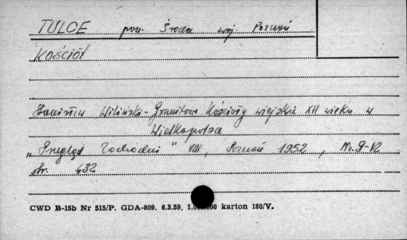 TULCE pow. Środa woj. Poznań
KOŚCIÓŁ
Wiliński - Granitowe Kościoły wiejskie XII wieku w
Wielkopolsce
„Przegląd Zachodni" VIII, Poznań 1952, Nr. 9-12
str. 432
CWD B-15b Nr 515/P. GDA-809. 6.3.59. karton 180/V.